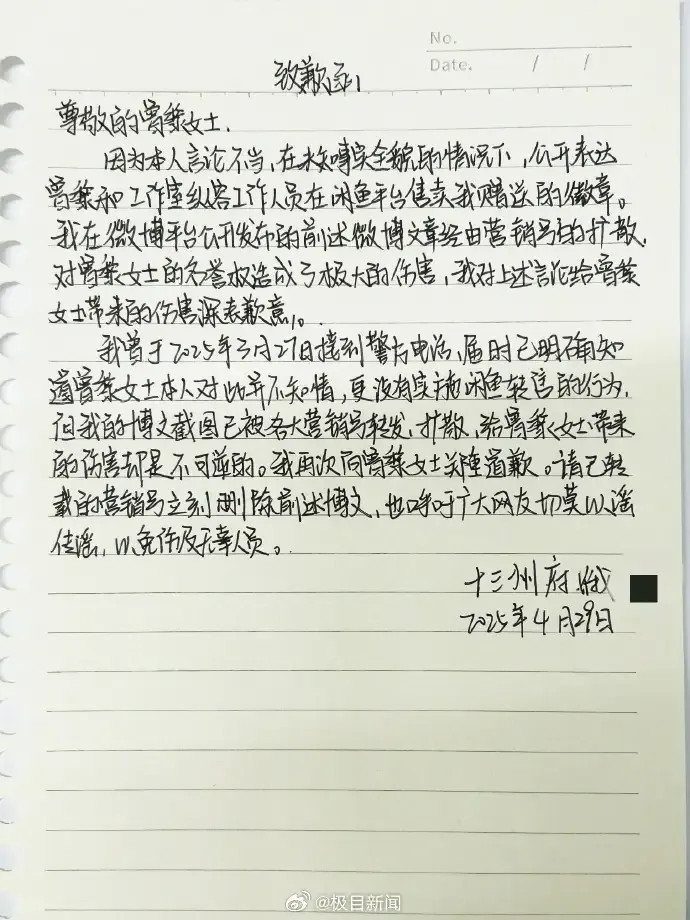 No.
Date. / /
致歉函
尊敬的曾黎女士.
因为本人言论不当,在未知事实全貌的情况下,公开表达
曾黎和工作室纵容工作人员在闲鱼平台售卖我赠送的徽章。
我在微博平台公开发布的前述微博文章经由营销号的扩散,
对曾黎女士的名誉权造成了极大的伤害,我对上述言论给曾黎
女士带来的伤害深表歉意。
我曾于2025年3月27日接到警方电话,届时已明确知
道曾黎女士本人对此并不知情,更没有实施闲鱼转售的行为,
但我的博文截图已被各大营销号转发、扩散,给曾黎女士带来
的伤害却是不可逆的。我再次向曾黎女士道歉。请已转
载的营销号立刻删除前述博文,也呼吁广大网友切莫以谣
传谣,以免伤及无辜人员。
十三州府
2025年4月29日
@极目新闻